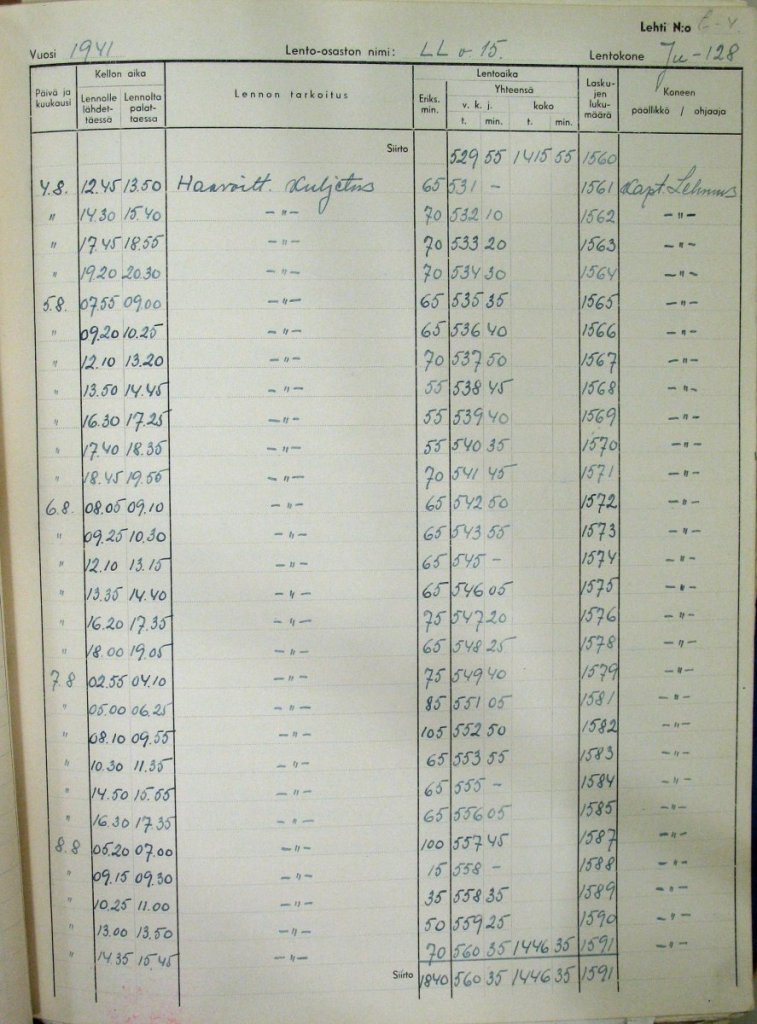 Lehti N:o
Vuosi 1941 Lento-osaston nimi: LLv. 15. Lentokone Ju-128
Päivä ja kuukausi Kellon aika Lennolle lähdettäessä Lennolta palattaessa Lennon tarkoitus Lentoaika Eriks. min. Yhteensä v. k. j. t. min. koko t. min. Laskujen lukumäärä Koneen päällikkö / ohjaaja
Siirto 529 55 1415 55 1560
4.8. 12.45 13.50 Haavoitt. kuljetus 65 531 – 1561 Kapt. Lehmus
" 14.30 15.40 –"– 70 532 10 1562 –"–
" 17.45 18.55 –"– 70 533 20 1563 –"–
" 19.20 20.30 –"– 70 534 30 1564 –"–
5.8. 07.55 09.00 –"– 65 535 35 1565 –"–
" 09.20 10.25 –"– 65 536 40 1566 –"–
" 12.10 13.20 –"– 70 537 50 1567 –"–
" 13.50 14.45 –"– 55 538 45 1568 –"–
" 16.30 17.25 –"– 55 539 40 1569 –"–
" 17.40 18.35 –"– 55 540 35 1570 –"–
" 18.45 19.55 –"– 70 541 45 1571 –"–
6.8. 08.05 09.10 –"– 65 542 50 1572 –"–
" 09.25 10.30 –"– 65 543 55 1573 –"–
" 12.10 13.15 –"– 65 545 – 1574 –"–
" 13.35 14.40 –"– 65 546 05 1575 –"–
" 16.20 17.35 –"– 75 547 20 1576 –"–
" 18.00 19.05 –"– 65 548 25 1578 –"–
7.8 02.55 04.10 –"– 75 549 40 1579 –"–
" 05.00 06.25 –"– 85 551 05 1581 –"–
" 08.10 09.55 –"– 105 552 50 1582 –"–
" 10.30 11.35 –"– 65 553 55 1583 –"–
" 14.50 15.55 –"– 65 555 – 1584 –"–
" 16.30 17.35 –"– 65 556 05 1585 –"–
8.8 05.20 07.00 –"– 100 557 45 1587 –"–
" 09.15 09.30 –"– 15 558 – 1588 –"–
" 10.25 11.00 –"– 35 558 35 1589 –"–
" 13.00 13.50 –"– 50 559 25 1590 –"–
" 14.35 15.45 –"– 70 560 35 1446 35 1591 –"–
Siirto 1840 560 35 1446 35 1591